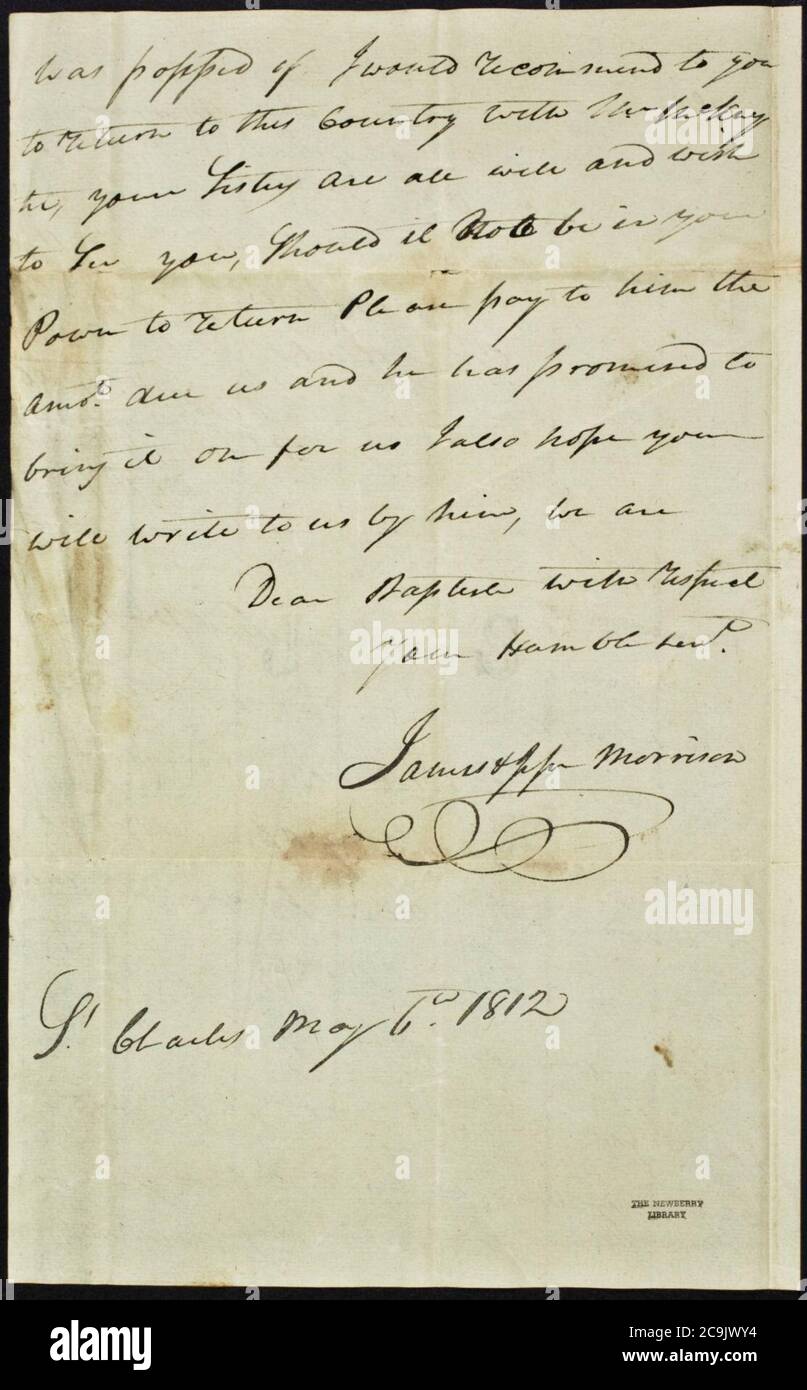 was possessed of I would recommend to you
to return to this Country with Mr McKay
your Sisters are all well and wish
to See you, Should it Not be in your
Power to return Please pay to him the
amot. due us and he has promised to
bring it on for us I also hope you
will write to us by him, we are
Dear Baptiste with respect
Your Humble Servt.
James & Jesse Morrison
St Charles May 6th. 1812
THE NEWBERRY
LIBRARY
alamy
Image ID: 2C9JWY4
www.alamy.com